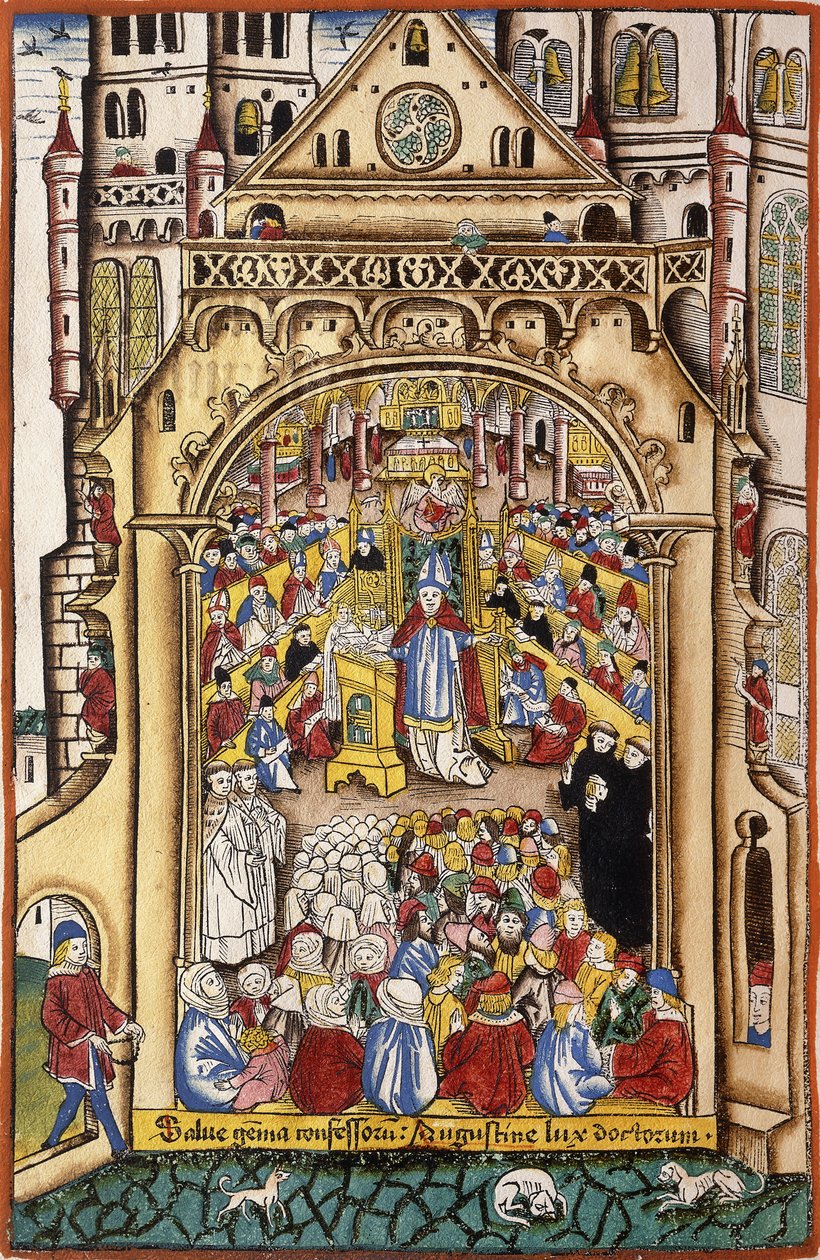 Salue gema confessorū: Augustine lux doctorum.